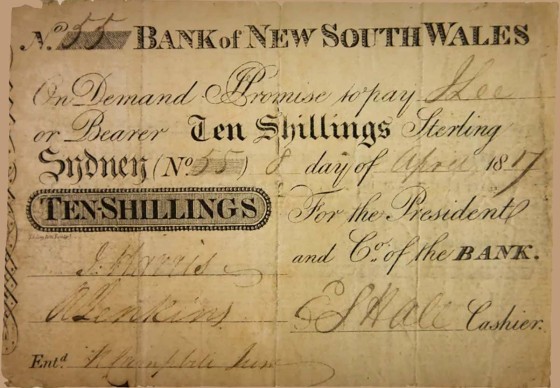 No. 55 BANK of NEW SOUTH WALES
On Demand Promise to pay J Lee
or Bearer Ten Shillings Sterling
Sydney (No 55) 8 day of April 1817
TEN-SHILLINGS For the President
and Cos. of the BANK.
J. Harris
R Jenkins E S Hall Cashier.
Entd. R Campbell Junr